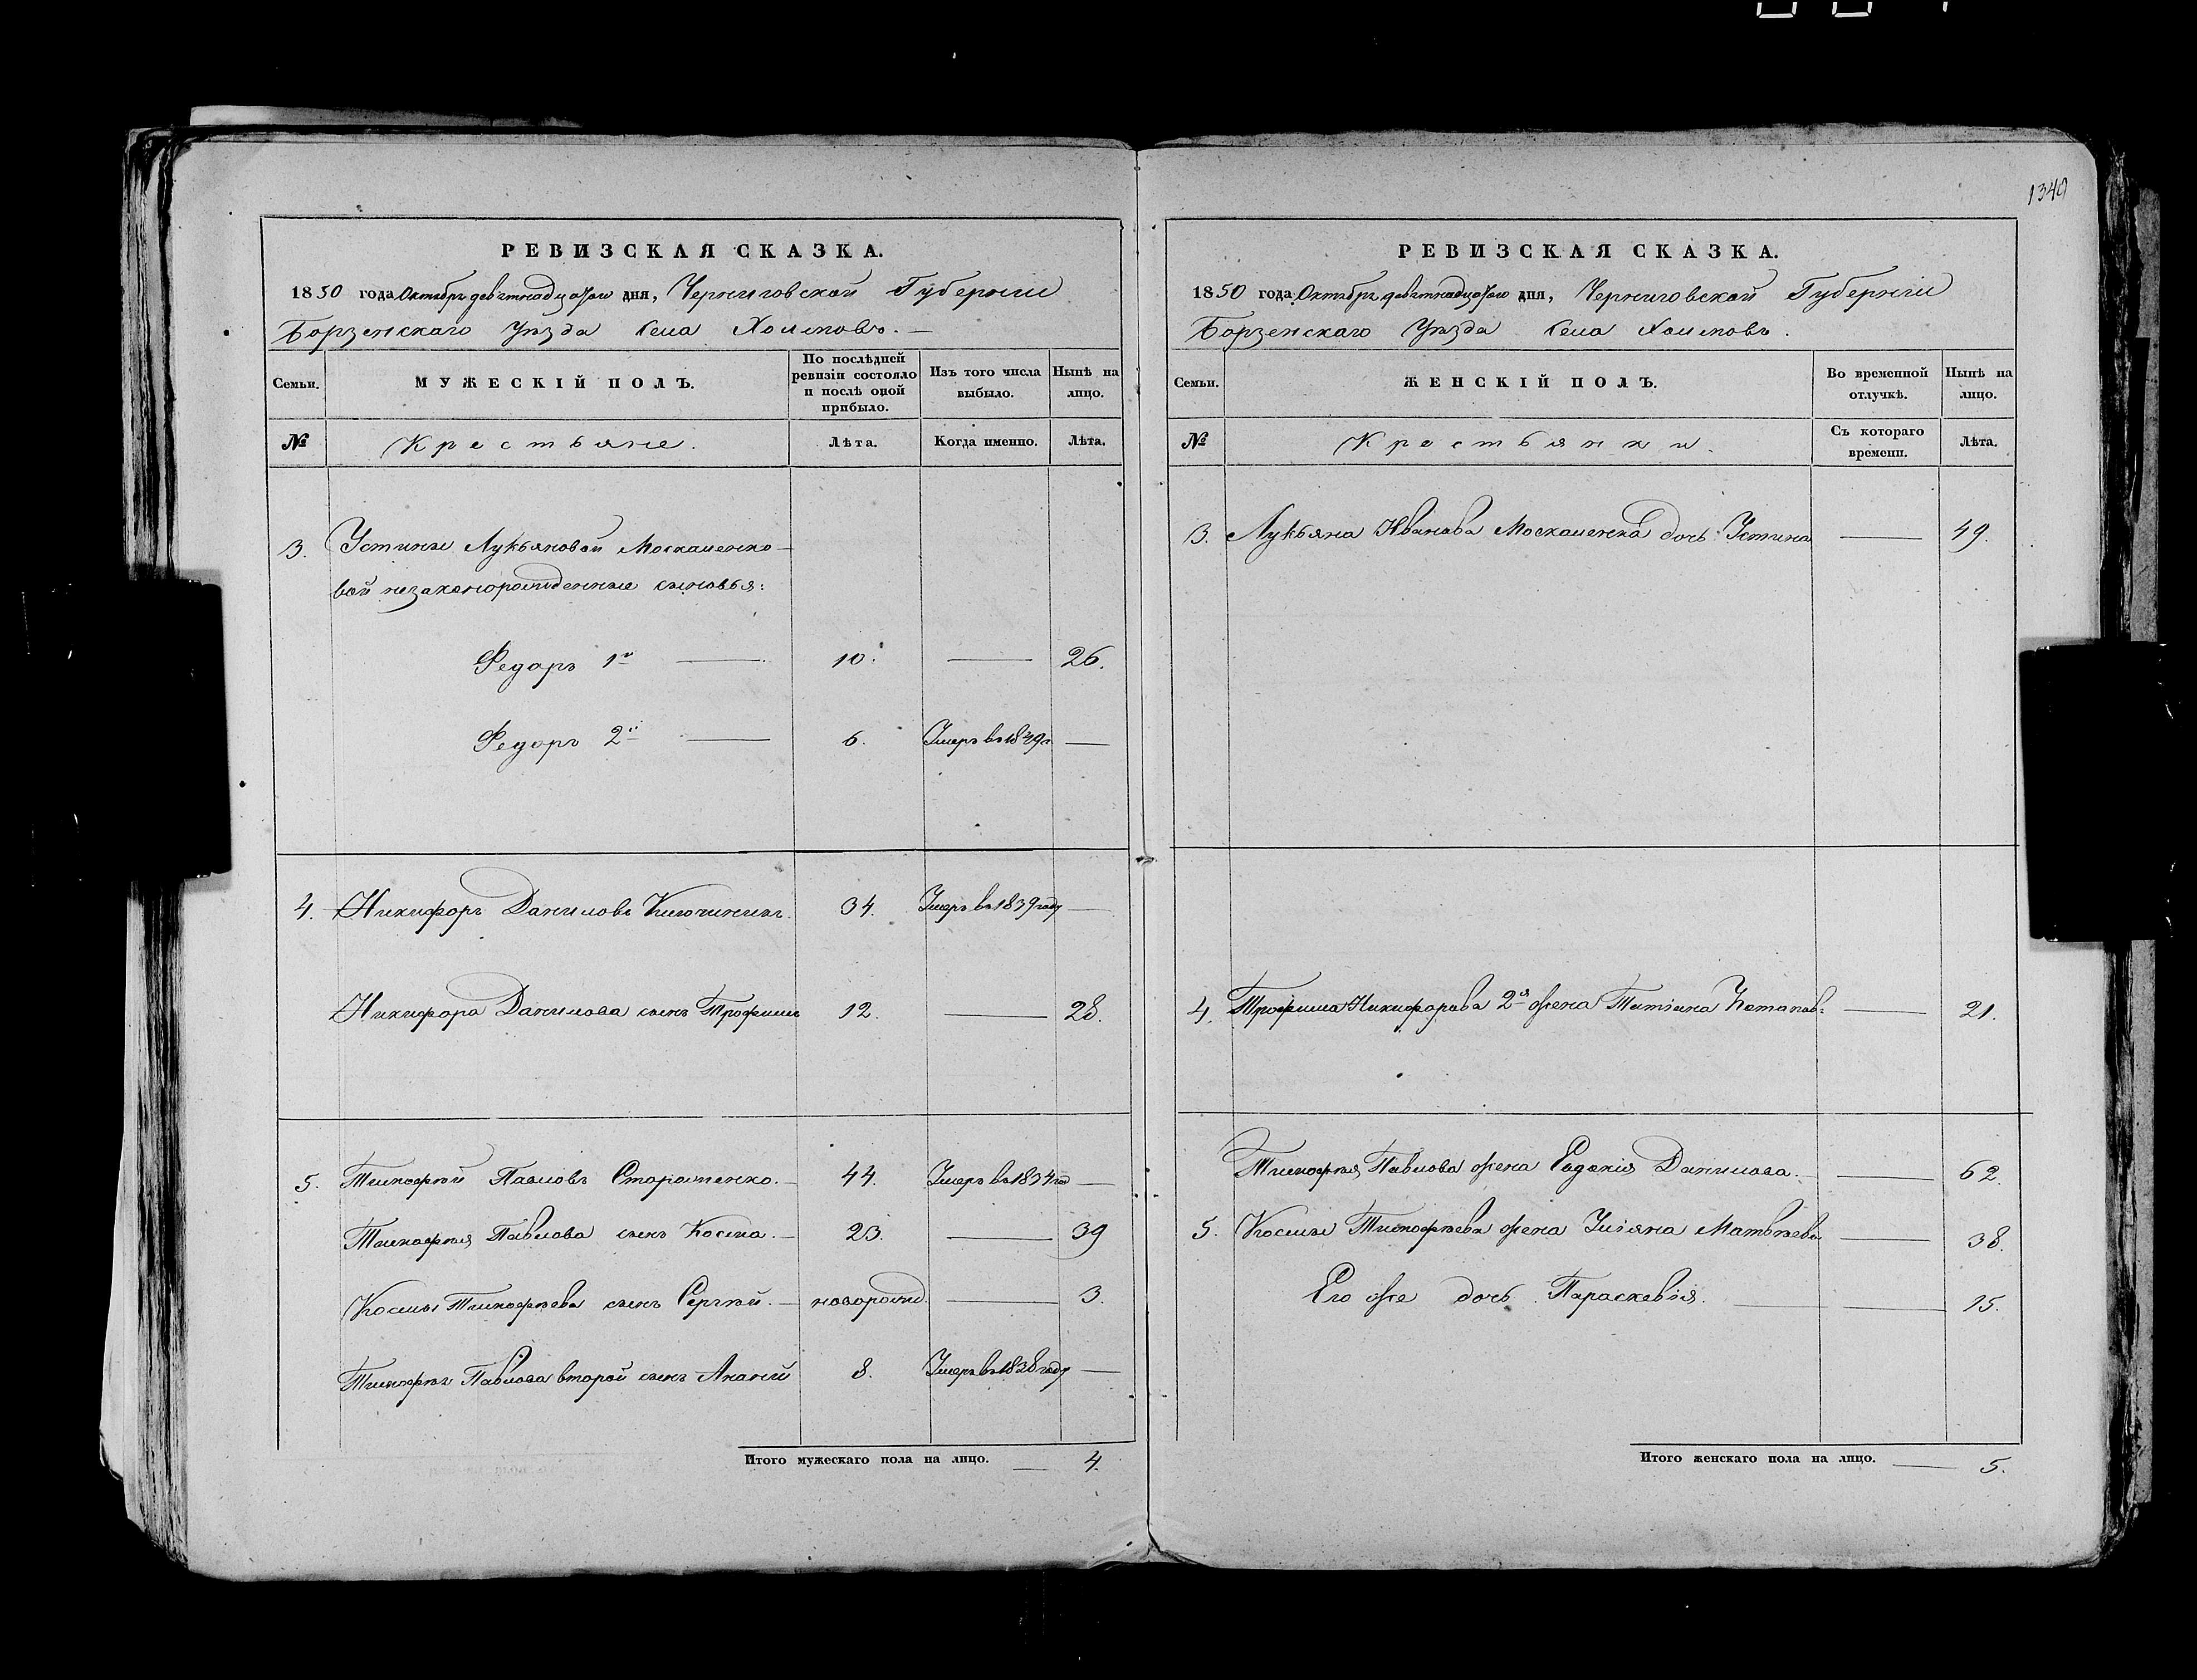 1340
РЕВИЗСКАЯ СКАЗКА.
1850 года Октября девятнадцатаго дня, Черниговской Губернiи
Борзенскаго Уѣзда Села Холмовъ. —
Семьи.
МУЖЕСКIЙ ПОЛЪ.
По послѣдней ревизiи состояло и послѣ оной прибыло.
Изъ того числа выбыло.
Нынѣ на лицо.
№
Крестьяне.
Лѣта.
Когда именно.
Лѣта.
3. Устины Лукьяновой Москаленко-
вой незаконорожденные сыновья:
Федоръ 1й — 10. — 26.
Федоръ 2й — 6. Умеръ въ 1849г. —
4. Никифоръ Даниловъ 34. Умеръ въ 1839 году —
Никифора Данилова сынъ Трофимъ 12. — 28.
5. Тимофѣй Павловъ 44. Умеръ въ 1834 год —
Тимофѣя Павлова сынъ Косма. — 23. — 39
Космы Тимофѣева сынъ Сергѣй. — новорожд. — 3.
Тимофѣя Павлова второй сынъ Ананiй 8. Умеръ въ 1838 году —
Итого мужескаго пола на лицо. — 4.
РЕВИЗСКАЯ СКАЗКА.
1850 года Октября девятнадцатаго дня, Черниговской Губернiи
Борзенскаго Уѣзда Села Холмовъ.
Семьи.
ЖЕНСКIЙ ПОЛЪ.
Во временной отлучкѣ.
Нынѣ на лицо.
№
Крестьянки.
Съ котораго времени.
Лѣта.
3. Лукьяна Иванова Москаленка дочь Устина — 49.
4. Трофима Никифорова 2я жена Татiана Потапов: — 21.
Тимофѣя Павлова жена Евдокiя Данилова. — 62.
5. Космы Тимофѣева жена Улiяна Матвѣева — 38.
Его же дочь Параскевiя. — — 15.
Итого женскаго пола на лицо. — 5.